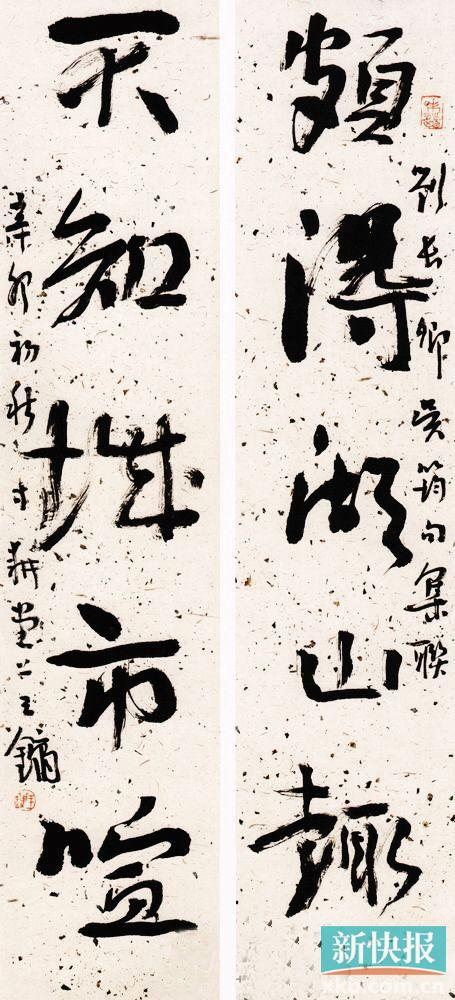 頗得湖山趣
劉長卿吳筠句集聯
不知城市喧
辛卯初秋寸耕堂上王鏞
新快报
xkb.com.cn